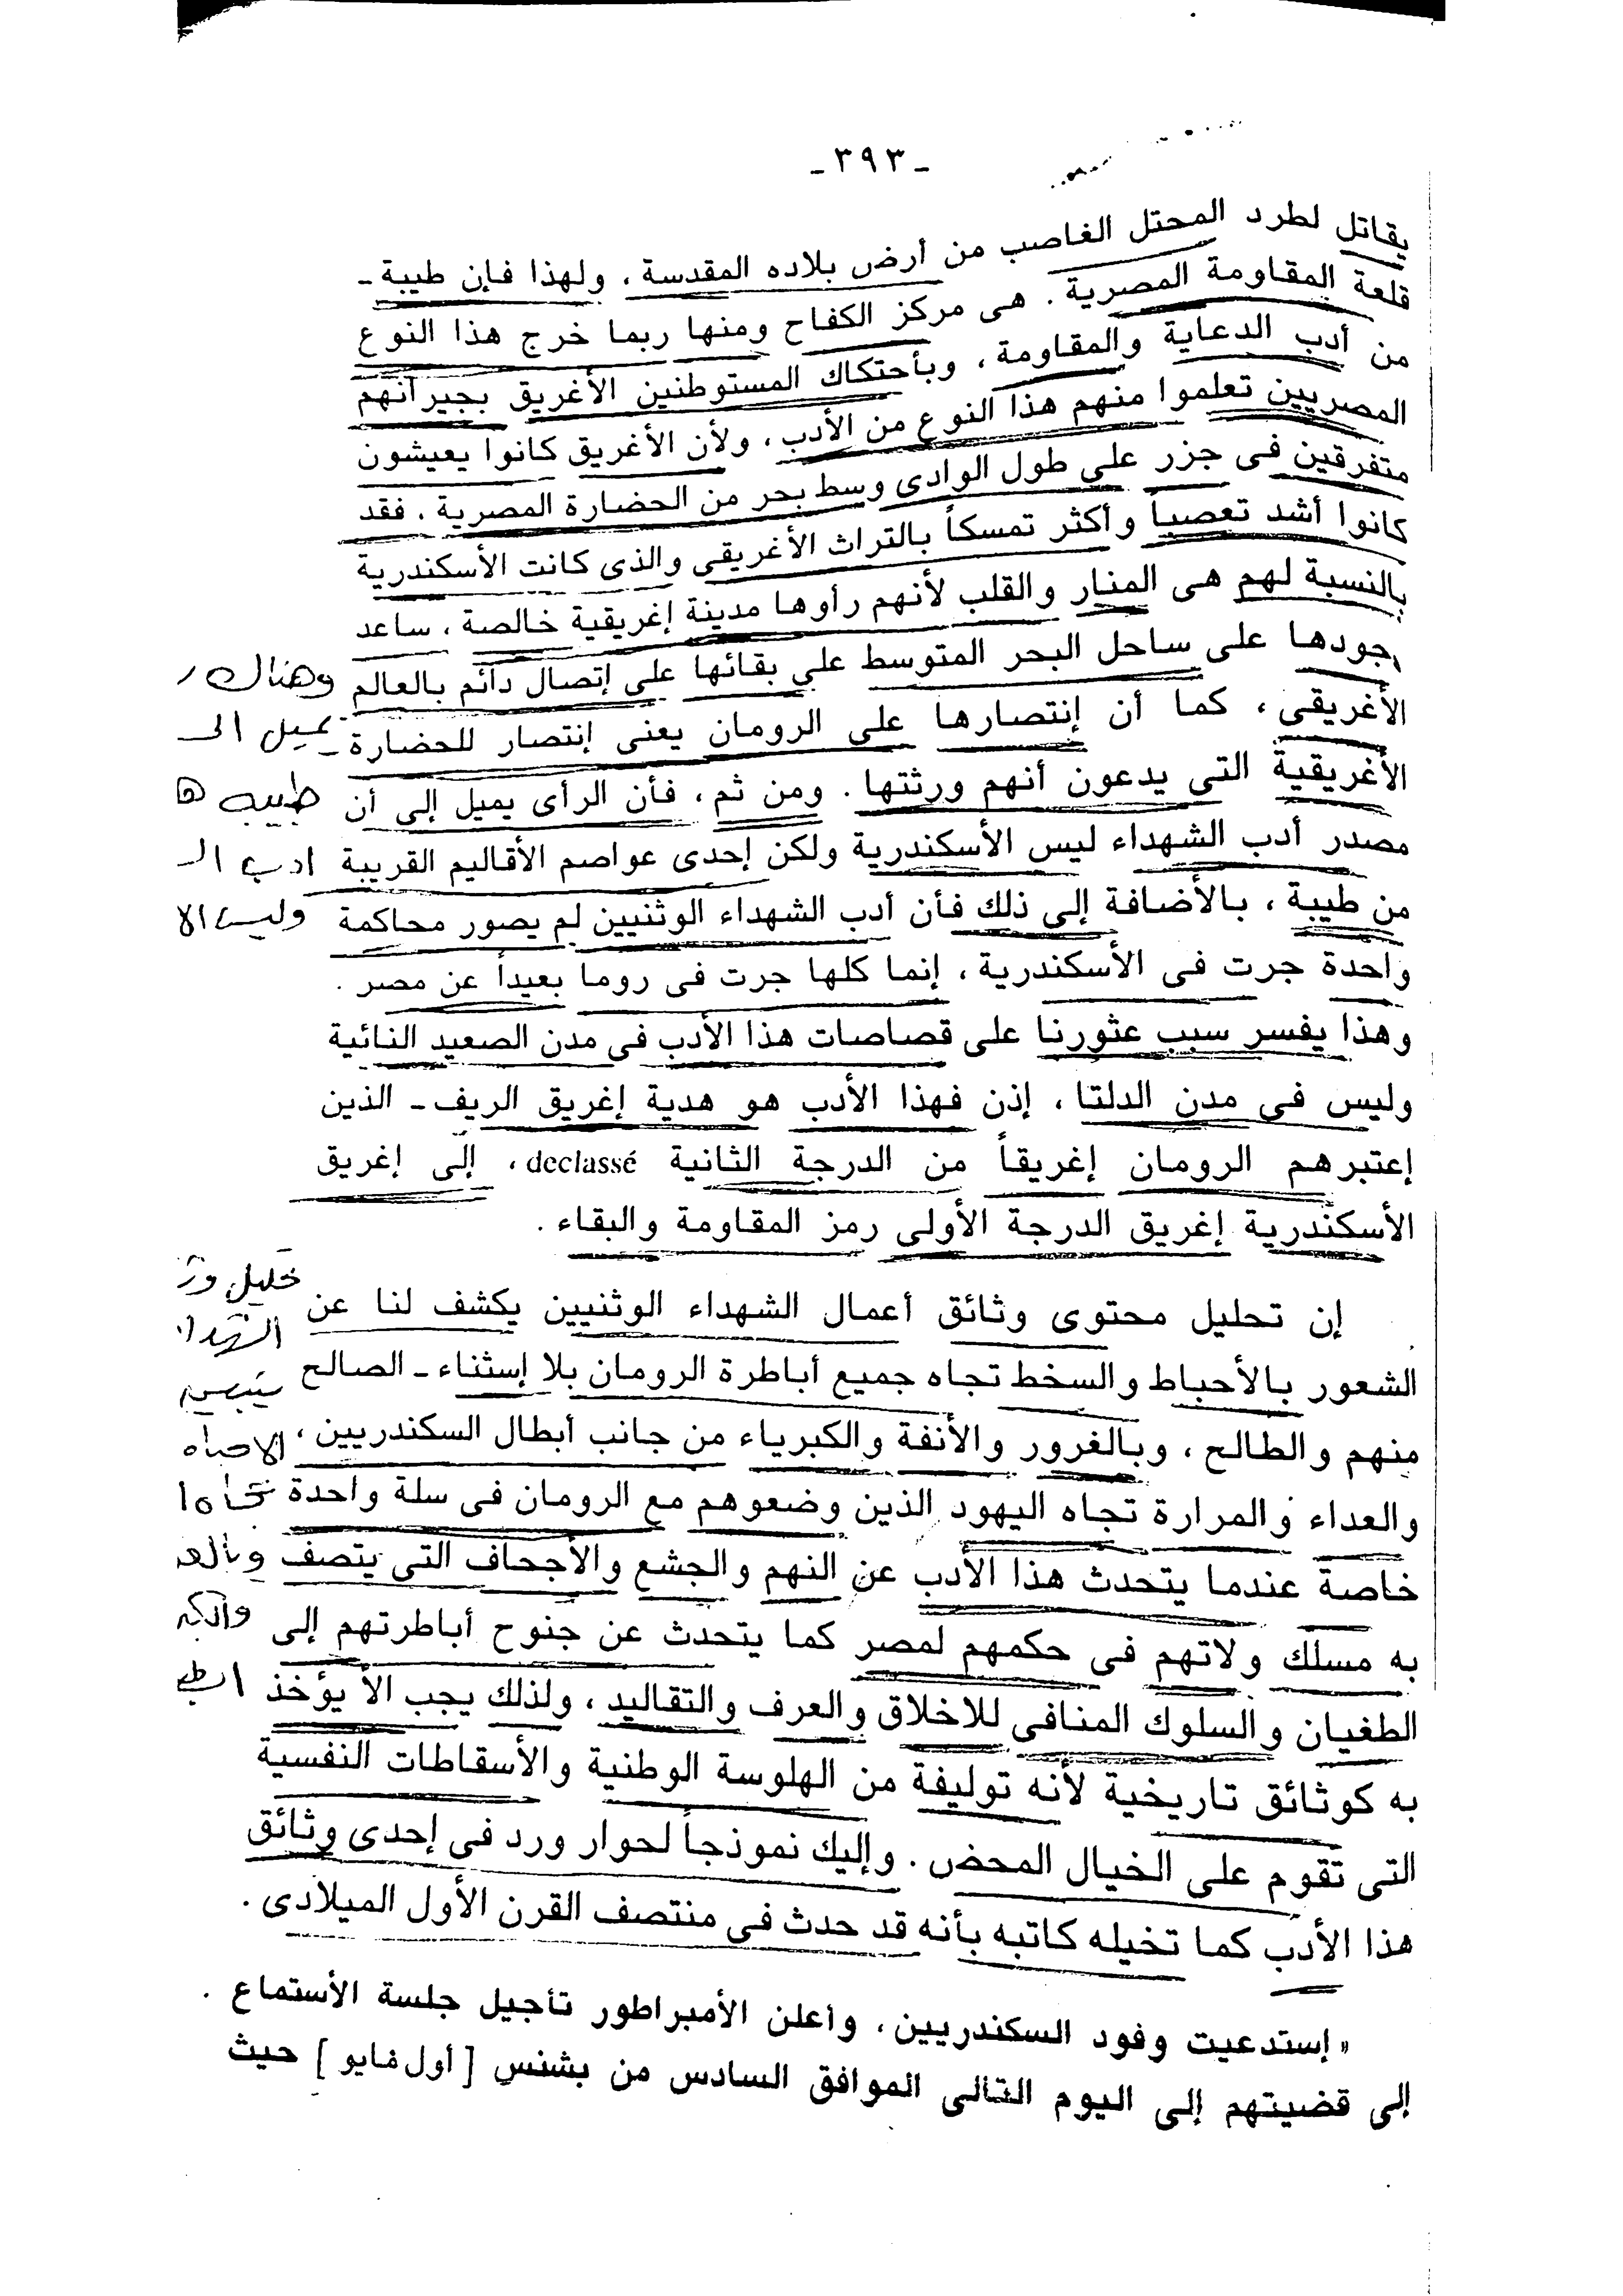 ـ ٣٩٣ ـ
يقاتل لطرد المحتل الغاصب من أرض بلاده المقدسة ، ولهذا فإن طيبة ـ
قلعة المقاومة المصرية . هى مركز الكفاح ومنها ربما خرج هذا النوع
من أدب الدعاية والمقاومة ، وبأحتكاك المستوطنين الأغريق بجيرانهم
المصريين تعلموا منهم هذا النوع من الأدب ، ولأن الأغريق كانوا يعيشون
متفرقين فى جزر على طول الوادى وسط بحر من الحضارة المصرية ، فقد
كانوا أشد تعصباً وأكثر تمسكاً بالتراث الأغريقى والذى كانت الأسكندرية
بالنسبة لهم هى المنار والقلب لأنهم رأوها مدينة إغريقية خالصة ، ساعد
وجودها على ساحل البحر المتوسط على بقائها على إتصال دائم بالعالم
وهناك
الأغريقى ، كما أن إنتصارها على الرومان يعنى إنتصار للحضارة
يميل الى
الأغريقية التى يدعون أنهم ورثتها . ومن ثم ، فأن الرأى يميل إلى أن
طيبه
مصدر أدب الشهداء ليس الأسكندرية ولكن إحدى عواصم الأقاليم القريبة
ادب
من طيبة ، بالأضافة إلى ذلك فأن أدب الشهداء الوثنيين لم يصور محاكمة
وليس
واحدة جرت فى الأسكندرية ، إنما كلها جرت فى روما بعيداً عن مصر .
وهذا يفسر سبب عثورنا على قصاصات هذا الأدب فى مدن الصعيد النائية
وليس فى مدن الدلتا ، إذن فهذا الأدب هو هدية إغريق الريف ـ الذين
إعتبرهم الرومان إغريقاً من الدرجة الثانية declassé ، إلى إغريق
الأسكندرية إغريق الدرجة الأولى رمز المقاومة والبقاء .
إن تحليل محتوى وثائق أعمال الشهداء الوثنيين يكشف لنا عن
الشعور بالأحباط والسخط تجاه جميع أباطرة الرومان بلا إستثناء ـ الصالح
منهم والطالح ، وبالغرور والأنفة والكبرياء من جانب أبطال السكندريين ،
والعداء والمرارة تجاه اليهود الذين وضعوهم مع الرومان فى سلة واحدة
خاصة عندما يتحدث هذا الأدب عن النهم والجشع والأجحاف التى يتصف
به مسلك ولاتهم فى حكمهم لمصر كما يتحدث عن جنوح أباطرتهم إلى
الطغيان والسلوك المنافى للاخلاق والعرف والتقاليد ، ولذلك يجب ألا يؤخذ
به كوثائق تاريخية لأنه توليفة من الهلوسة الوطنية والأسقاطات النفسية
التى تقوم على الخيال المحض . وإليك نموذجاً لحوار ورد فى إحدى وثائق
هذا الأدب كما تخيله كاتبه بأنه قد حدث فى منتصف القرن الأول الميلادى .
« إستدعيت وفود السكندريين ، وأعلن الأمبراطور تأجيل جلسة الأستماع .
إلى قضيتهم إلى اليوم التالى الموافق السادس من بشنس [ أول مايو ] حيث